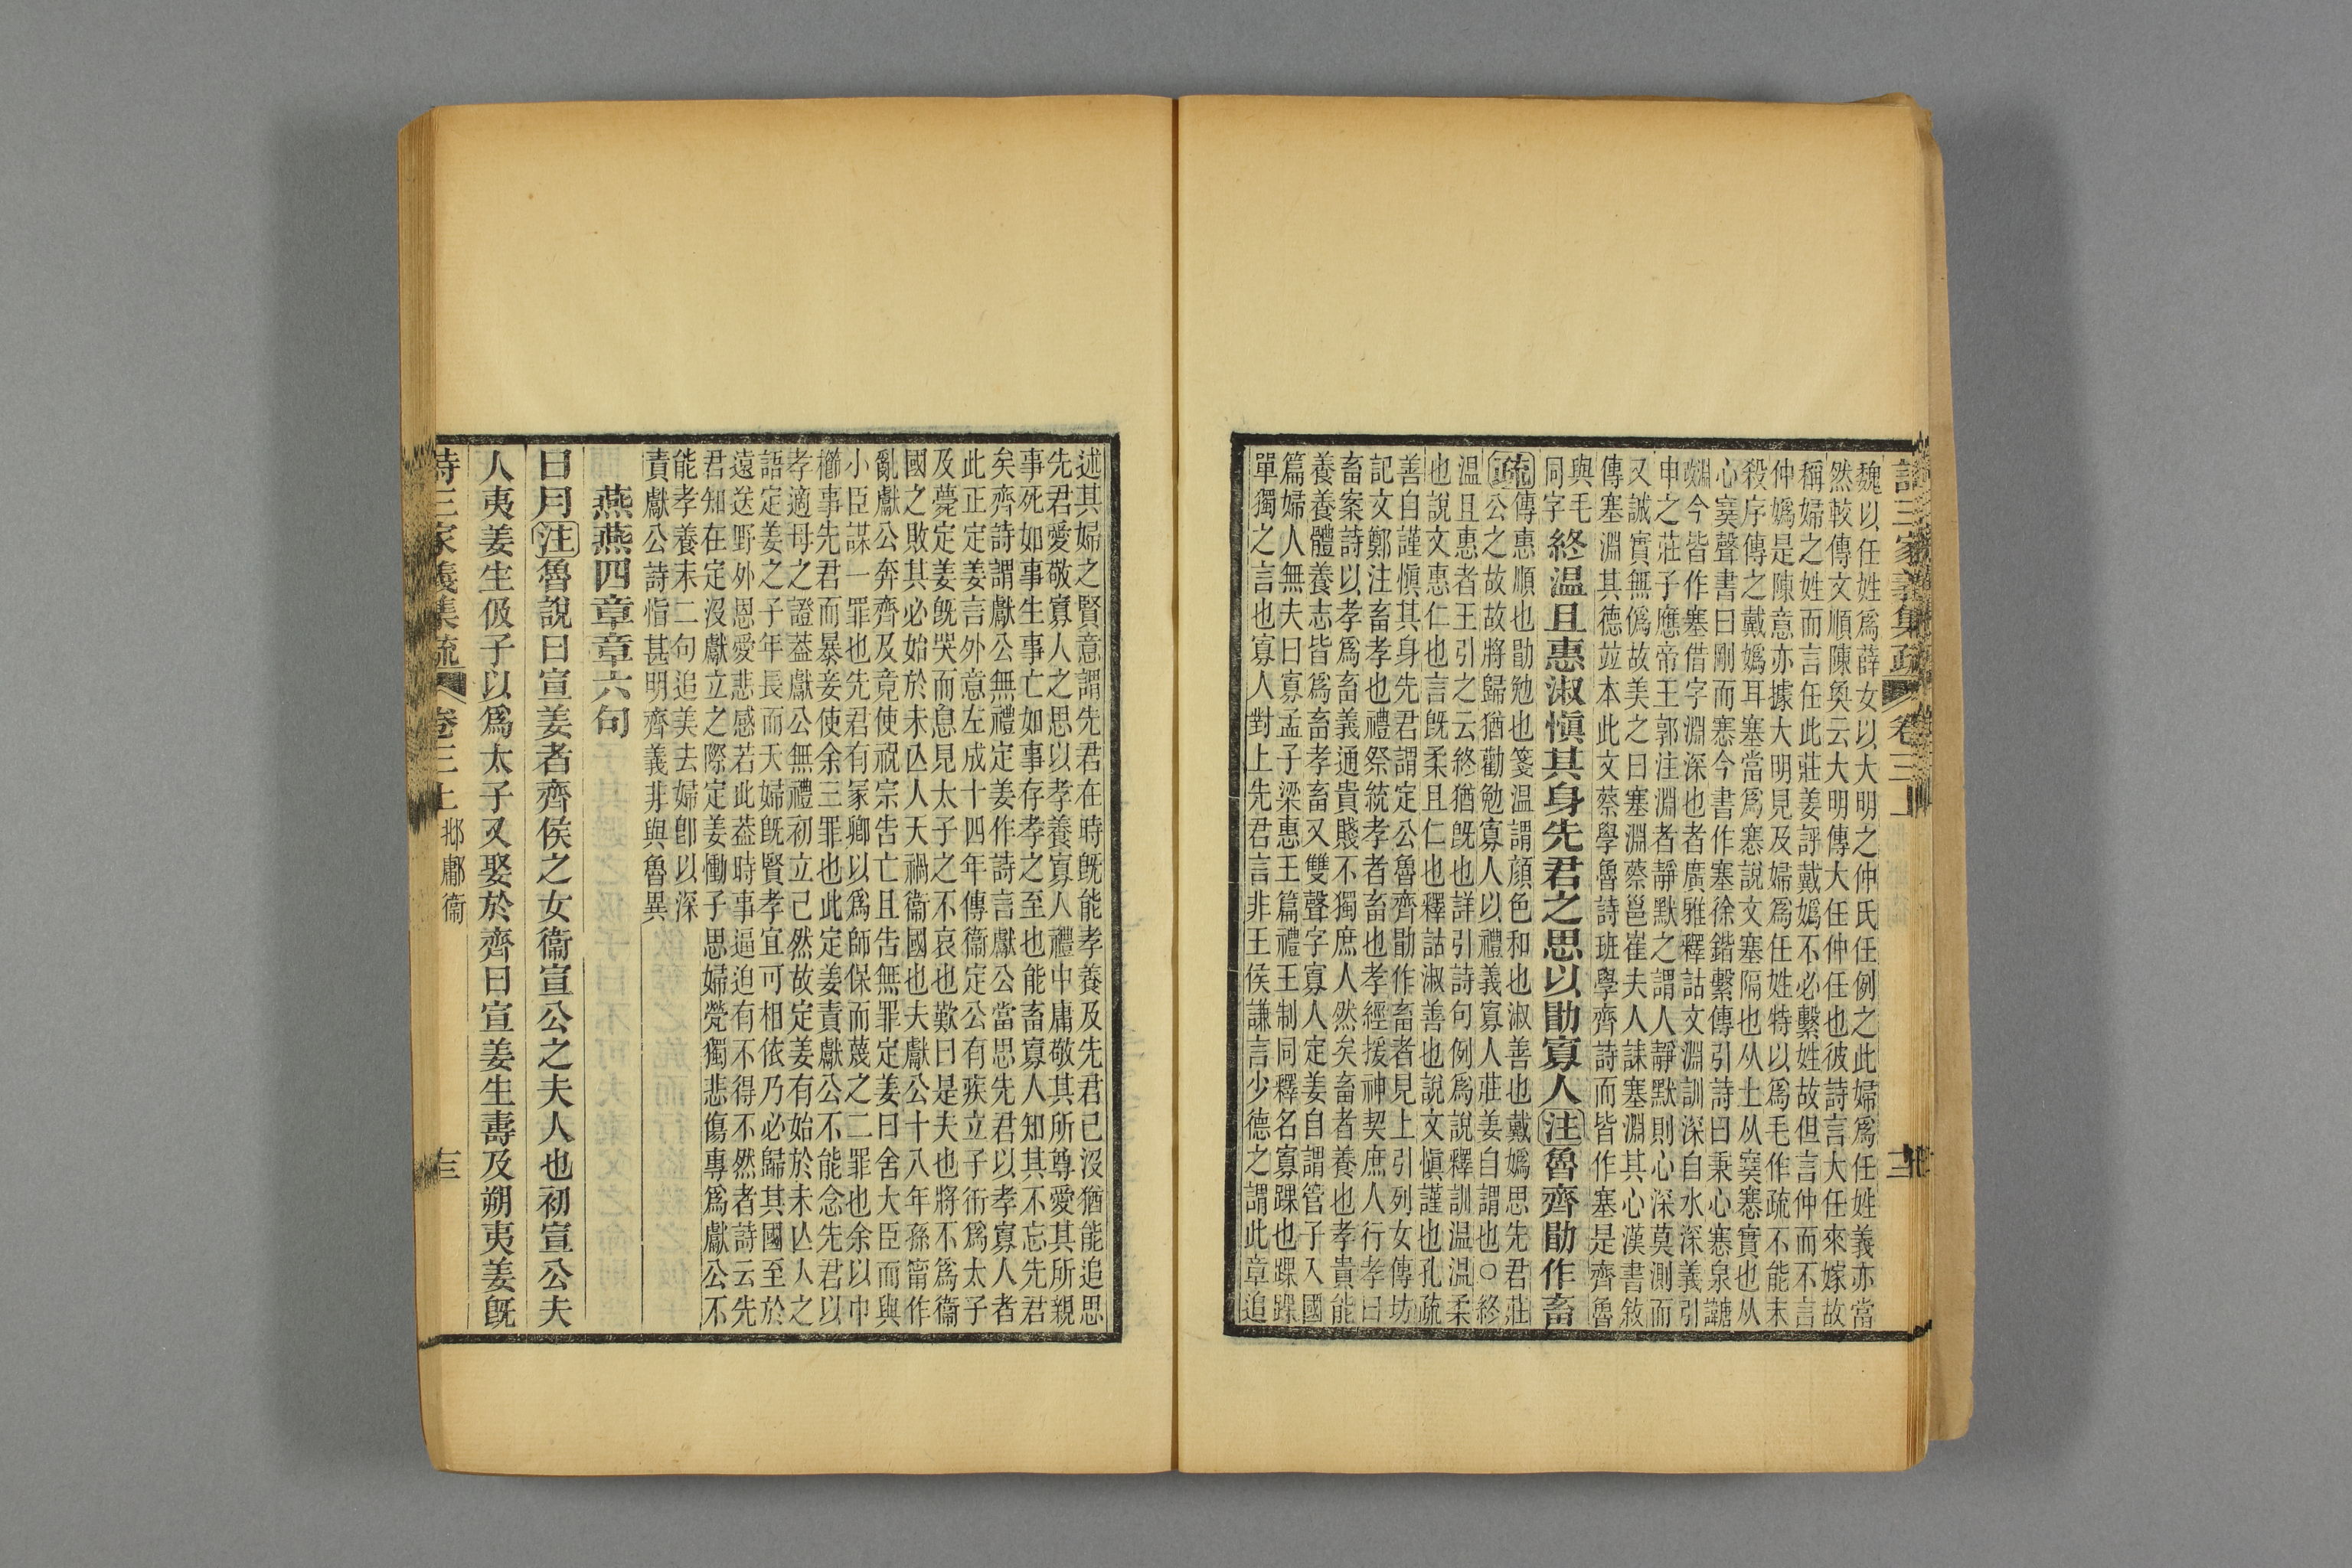 詩三家義集疏 卷三上
魏以任姓爲薛女以大明之仲氏任例之此婦爲任姓義亦當
然較傳文順陳奐云大明傳大任仲任也彼詩言大任來嫁故
稱婦之姓而言任此莊姜評戴嬀不必繫姓故但言仲而不言
仲嬀是陳意亦據大明見及婦爲任姓特以爲毛作疏不能末
殺序傳之戴嬀耳塞當爲𡫳說文塞隔也从土从𡨄𡫳實也从
心𡨄聲書曰剛而𡫳今書作塞徐鍇繫傳引詩曰秉心𡫳泉讀
淵今皆作塞借字淵深也者廣雅釋詁文淵訓深自水深義引
申之莊子應帝王郭注淵者靜默之謂人靜默則心深莫測而
又誠實無僞故美之曰塞淵蔡邕崔夫人誄塞淵其心漢書敘
傳塞淵其德竝本此文蔡學魯詩班學齊詩而皆作塞是齊魯
與毛
同字
終温且惠淑愼其身先君之思以勖寡人注魯齊勖作畜
疏傳惠順也勖勉也箋温謂顔色和也淑善也戴嬀思先君莊
公之故故將歸猶勸勉寡人以禮義寡人莊姜自謂也○終
温且惠者王引之云終猶旣也詳引詩句例爲說釋訓温温柔
也說文惠仁也言旣柔且仁也釋詁淑善也說文愼謹也孔疏
善自謹愼其身先君謂定公魯齊勖作畜者見上引列女傳坊
記文鄭注畜孝也禮祭統孝者畜也孝經援神契庶人行孝曰
畜案詩以孝爲畜義通貴賤不獨庶人然矣畜者養也孝貴能
養養體養志皆爲畜孝畜又雙聲字寡人定姜自謂管子入國
篇婦人無夫曰寡孟子梁惠王篇禮王制同釋名寡踝也踝踝
單獨之言也寡人對上先君言非王侯謙言少德之謂此章追
述其婦之賢意謂先君在時旣能孝養及先君已沒猶能追思
先君愛敬寡人之思以孝養寡人禮中庸敬其所尊愛其所親
事死如事生事亡如事存孝之至也能畜寡人知其不忘先君
矣齊詩謂獻公無禮定姜作詩言獻公當思先君以孝寡人者
此正定姜言外意左成十四年傳衞定公有疾立子衎爲太子
及薨定姜旣哭而息見太子之不哀也歎曰是夫也將不爲衞
國之敗其必始於未亾人天禍衞國也夫獻公十八年孫甯作
亂獻公奔齊及竟使祝宗告亡且告無罪定姜曰舍大臣而與
小臣謀一罪也先君有冢卿以爲師保而蔑之二罪也余以巾
櫛事先君而暴妾使余三罪也此定姜責獻公不能念先君以
孝適母之證葢獻公無禮初立已然故定姜有始於未亾人之
語定姜之子年長而天婦旣賢孝宜可相依乃必歸其國至於
遠送野外恩愛悲感若此葢時事逼迫有不得不然者詩云先
君知在定沒獻立之際定姜慟子思婦煢獨悲傷專爲獻公不
能孝養末二句追美去婦卽以深
責獻公詩恉甚明齊義非與魯異
燕燕四章章六句
日月注魯說曰宣姜者齊侯之女衞宣公之夫人也初宣公夫
人夷姜生伋子以爲太子又娶於齊曰宣姜生壽及朔夷姜旣
詩三家義集疏 卷三上 邶鄘衞